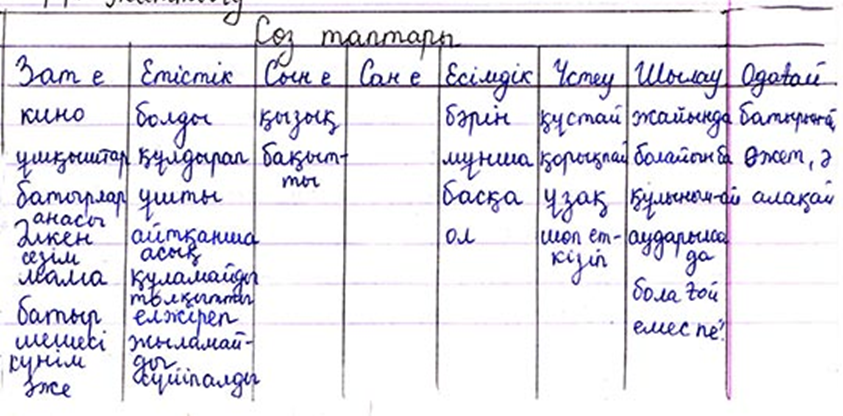 Сөз таптары
Зат е Етістік Сын е Сан е Есімдік Үстеу Шылау Одағай
кино болды қызық бәрін құстай жайында батырың-ай,
ұшқыштар құлдырап бақыт- мұнша қорықпай болайын ба Әжет, ә
батырлар ұшты ты басқа ұзақ құлыным-ай алақай
анасы
Әлкен айтқанша ол шоп ет- аударылса
сезім асық кізіп да
мама құламайды
толқытты бола ғой
батыр елжіреп
шешесі жыламай- емес пе?
күнім ды
әже сүйіпалды